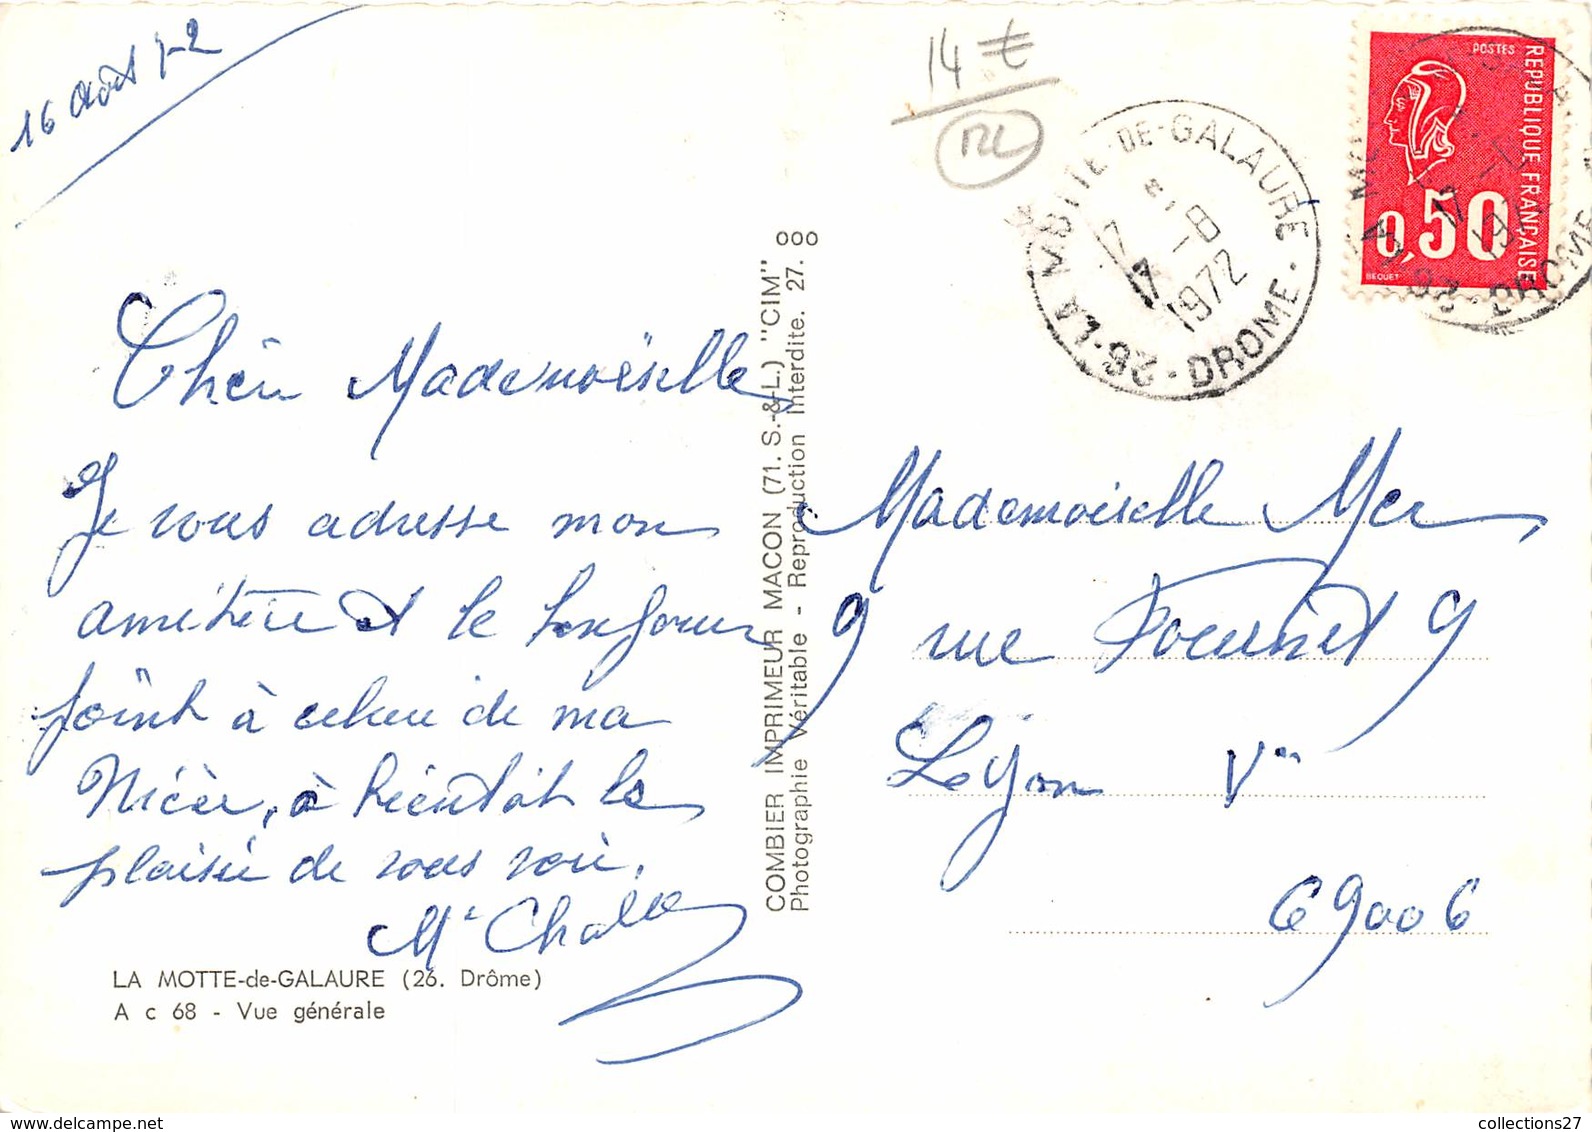 16 Août 72
14 €
000
LA MOTTE-DE-GALAURE
17 -8
1972
26 - DROME
POSTES
REPUBLIQUE FRANÇAISE
0,50
BEQUET
17 -8
1972
26 - DROME
Chère Mademoiselle
Je vous adresse mon
amitière et le bonjour
joint à celui de ma
Nièce, à bientôt le
plaisir de vous voir.
LA MOTTE-de-GALAURE (26. Drôme)
A c 68 - Vue générale
COMBIER IMPRIMEUR MACON (71. S.-&-L.) "CIM"
Photographie Véritable - Reproduction Interdite. 27.
Mademoiselle Mer
9 rue 9
Lyon V
69006
collections27